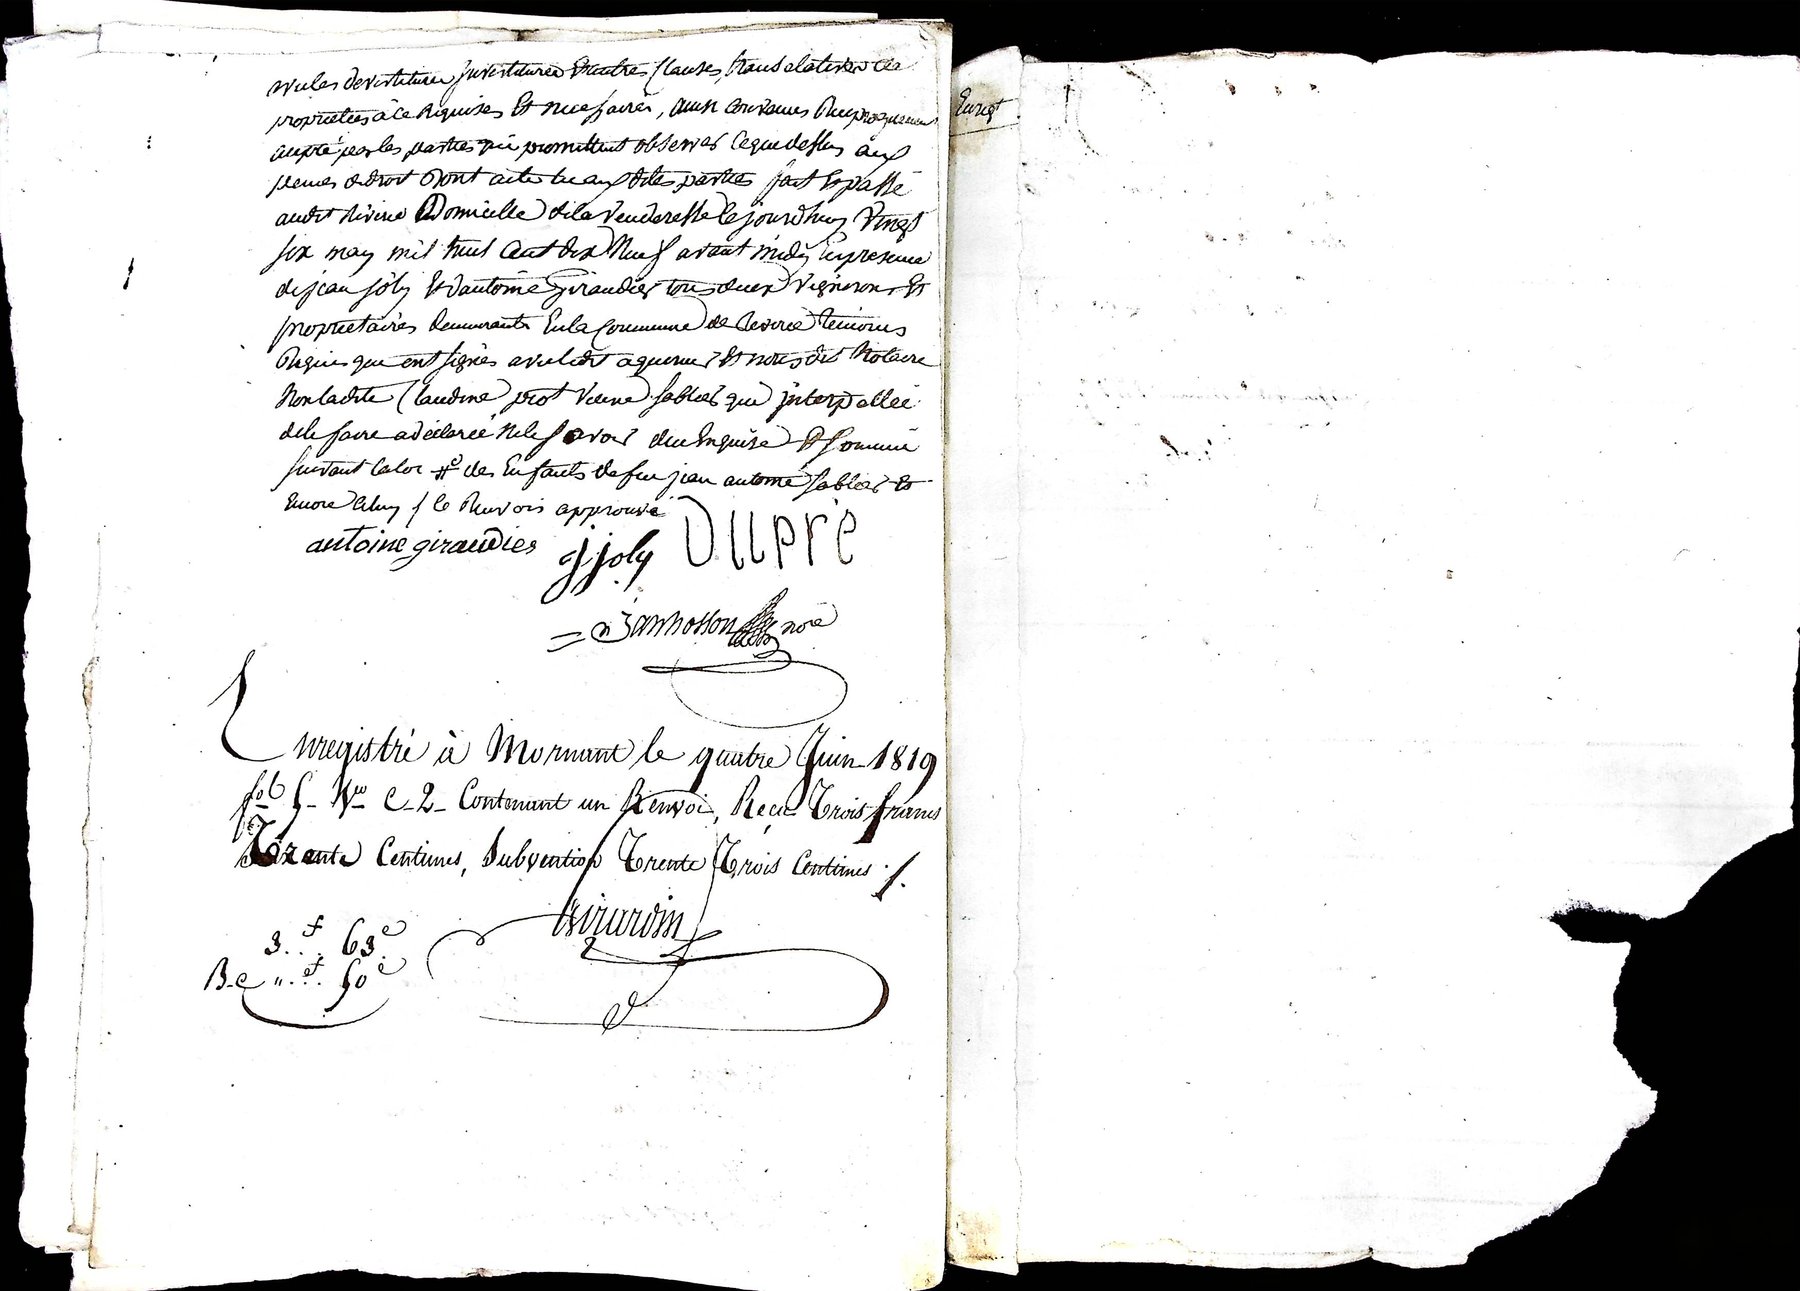 avec les devestiture investiture et autres clauses translatives de
proprietés à ce Requises Et necessaires, ainsi convenu Reciproquement
accepté par les parties qui promettent observer ce que dessus aux
peines de droit dont acte lu aux dites parties fait et passé
audit Riverie Domicille de la Venderesse le jourd'huy Vingt
six may mil huit Cent dix Neuf avant midy En presence
de jean joly Et d'antoine Giraudier tous deux Vignerons Et
proprietaires demeurants En la Commune de Riverie temoins
Requis que ont signés avec ledit aquereur Et nous dit Notaire
Non ladite Claudine piot Veuve sablier que interpellée
de le faire a déclarée Ne le savoir duu Enquise Et sommé
suivant la loi # des Enfants de feu jean antoine sablier Et
Encore celuy / le Renvois approuvé
antoine giraudier jjoly Dupré
nore
Enregistré à Mornant le quatre Juin 1819
fol 5 Vo C-2- Contenant un Renvoi, Reçu Trois francs
Trente Centimes, Subvention Trente Trois Centimes ./.
Girardin
3..f 63c
B-e "..f 50c
Enregt